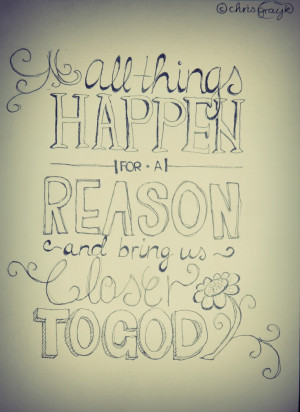 © chris Grayk
all things
HAPPEN
FOR • A
REASON
and bring us
Closer
TO GOD